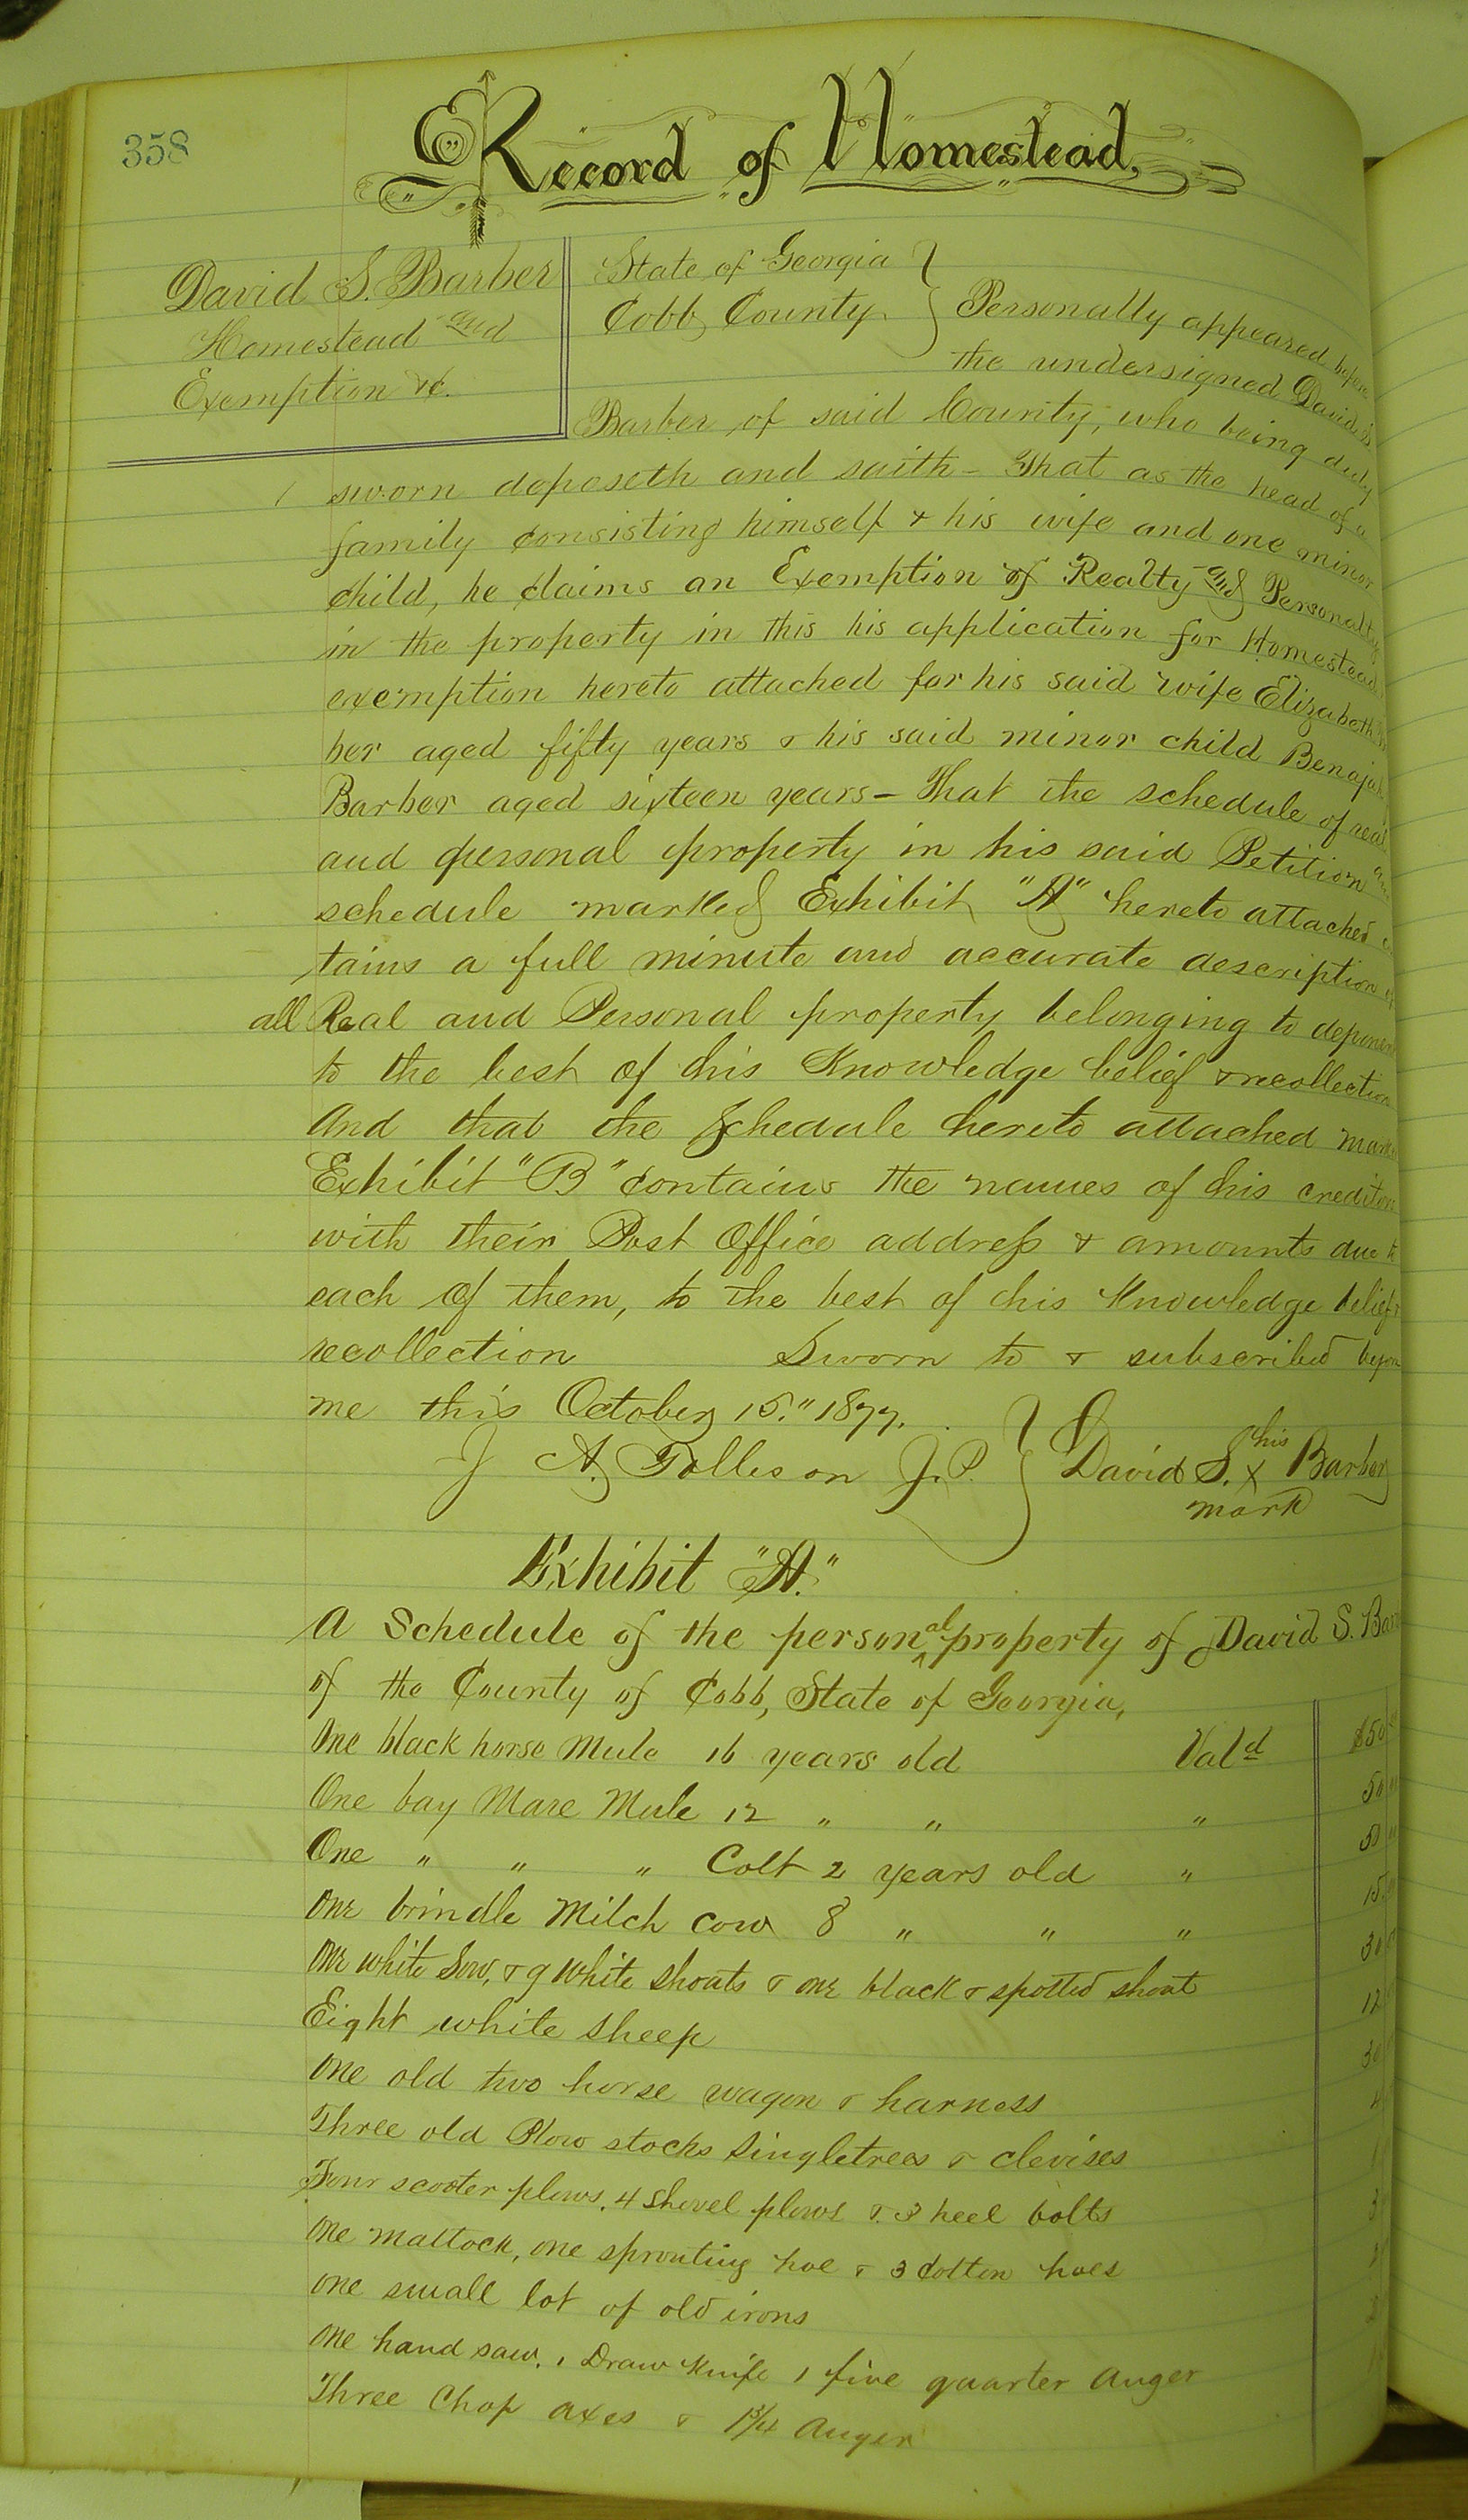 358
Record of Homestead.
David S. Barber
Homestead and
Exemption &c.
State of Georgia
Cobb County.
Personally appeared before
the undersigned David S.
Barber of said County, who being duly
sworn deposeth and saith – That as the head of a
family consisting himself & his wife and one minor
child, he claims an Exemption of Realty and Personalty
in the property in this his application for Homestead
exemption hereto attached for his said wife Elizabeth
ber aged fifty years & his said minor child Benajah
Barber aged sixteen years – That the schedule of real
and personal property in his said Petition
schedule marked Exhibit "A" hereto attached
tains a full minute and accurate description of
all Real and Personal property belonging to deponent
to the best of his Knowledge belief & recollection
And that the Schedule hereto attached
Exhibit "B" contains the names of his creditors
with their Post Office address & amounts due to
each of them, to the best of his Knowledge belief &
recollection Sworn to & subscribed before
me this October 15." 1877.
J A. Tolleson J.P. David S. his x mark Barber
Exhibit "A."
A Schedule of the personal property of David S. Bar
of the County of Cobb, State of Georgia,
One black horse Mule 16 years old Vald $50
One bay Mare Mule 12 " " " 50
One " " " Colt 2 years old " 50
One brindle Milch cow 8 " " " 15
One white Sow, & 9 White shoats & one black & spotted shoat 30
Eight white sheep 12
One old two horse wagon & harness 30
Three old Plow stocks Singletrees & clevises 4
Four scooter plows, 4 Shovel plows & 3 heel bolts
One mattock, one sprouting hoe & 3 Cotton hoes
One small lot of old irons
One hand saw, 1 Draw Knife 1 five quarter Auger
Three Chop axes & 1 3/4 Auger